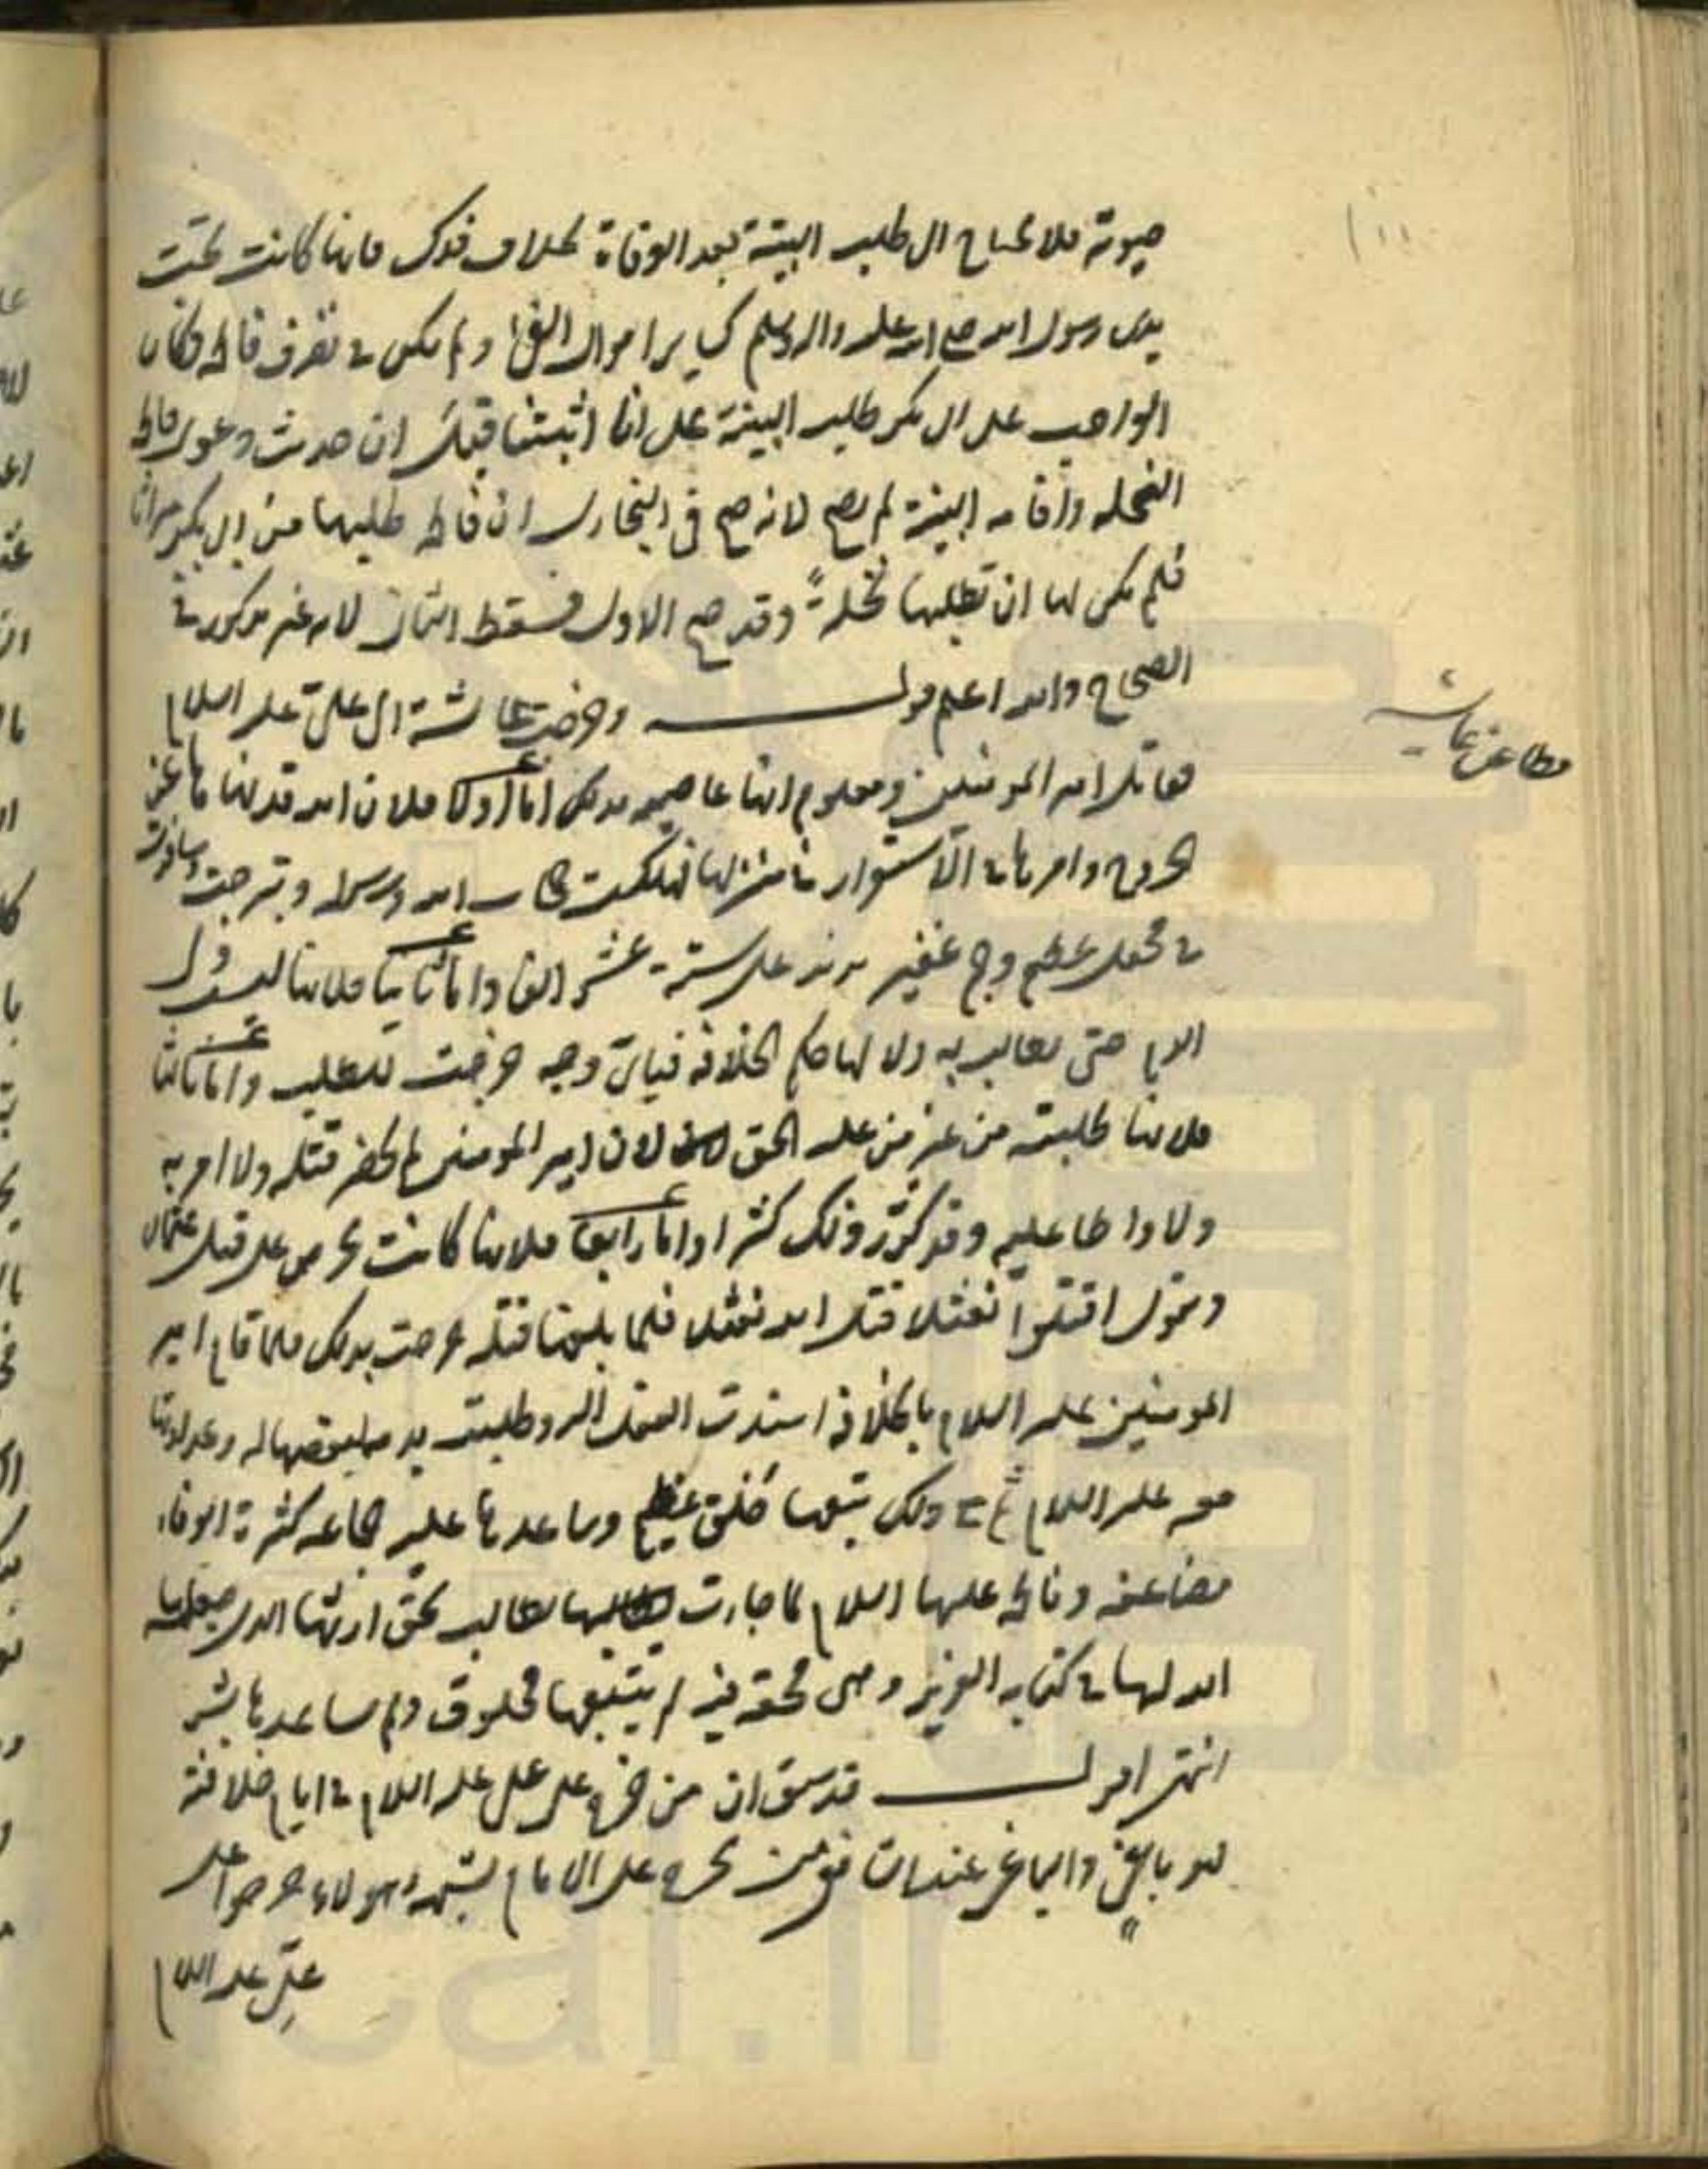 حيوته فلا تحتاج الى طلب البينة بعد الوفاة بخلاف فدك فانها كانت تحت
يدى رسول الله صلى الله عليه واله وسلم كساير اموال الفئ ولم يكن في تصرف فاطمة وكان
الواجب على ابى بكر طلب البينة على انا اثبتنا قبل ان حديث دعوى فاطمة
النحلة واقامة البينة لم يصح لانه صح في البخارى ان فاطمة طلبها من ابى بكر ميراثا
فلم يكن لها ان تطلبها نحلةً وقد صح الاول فسقط الثانى لانه غير مذكور في
الصحاح والله اعلم قوله وخرجت عايشة الى على عليه السلام
تقاتل امير المؤمنين ومعلوم انها عاصية بذلك اما اولا فلان الله قد نهاها عن
الخروج وامرها بالاستقرار في منزلها فهتكت حجاب الله ورسوله وتبرجت وسافرت
في محفل عظيم وجم غفير يزيد على ستة عشر الفا واما ثانيا فلانها ليست ولى
الدم حتى تطالب به ولا لها حكم الخلافة فباى وجه خرجت للطلب واما ثالثا
فلانها طلبته من غير من عليه الحق لان امير المؤمنين لم يحضر قتله ولا امر به
ولا واطا عليه وقد ذكر ذلك كثيرا واما رابعا فلانها كانت تحرص على قتل عثمان
وتقول اقتلوا نعثلا قتل الله نعثلا فلما بلغها قتله فرحت بذلك فلما قام امير
المؤمنين عليه السلام بالخلافة اسندت القتل اليه وطلبت بدمه لبغضها له وعداوتها
معه عليه السلام ثم مع ذلك تبعها خلق عظيم وساعدها عليه جماعة كثيرة الوفا
مضاعفة وفاطمة عليها السلام لما جاءت تطالب بحق ارثها الذى جعله
الله لها في كتابه العزيز وهى محقة فيه لم يتبعها مخلوق ولم يساعدها بشر
انتهى اقول قد سبق ان من خرج على على عليه السلام في ايام خلافته
فهو باغٍ والباغى عندنا من يخرج على الامام بشبهة وهؤلاء خرجوا على
على عليه السلام
مطاعن عايشه